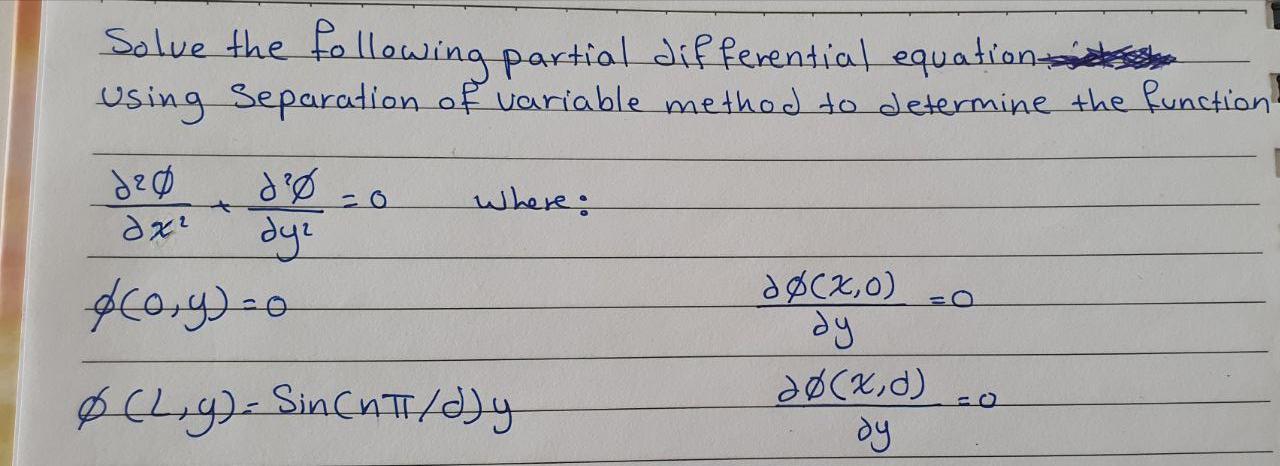 Solve the following partial differential equation
using Separation of variable method to determine the function
∂²Ø/∂x² + ∂²Ø/∂y² = 0 where:
ϕ(0,y)=0 ∂Ø(x,0)/∂y =0
ϕ(L,y)= Sin(nπ/d)y ∂Ø(x,d)/∂y =0